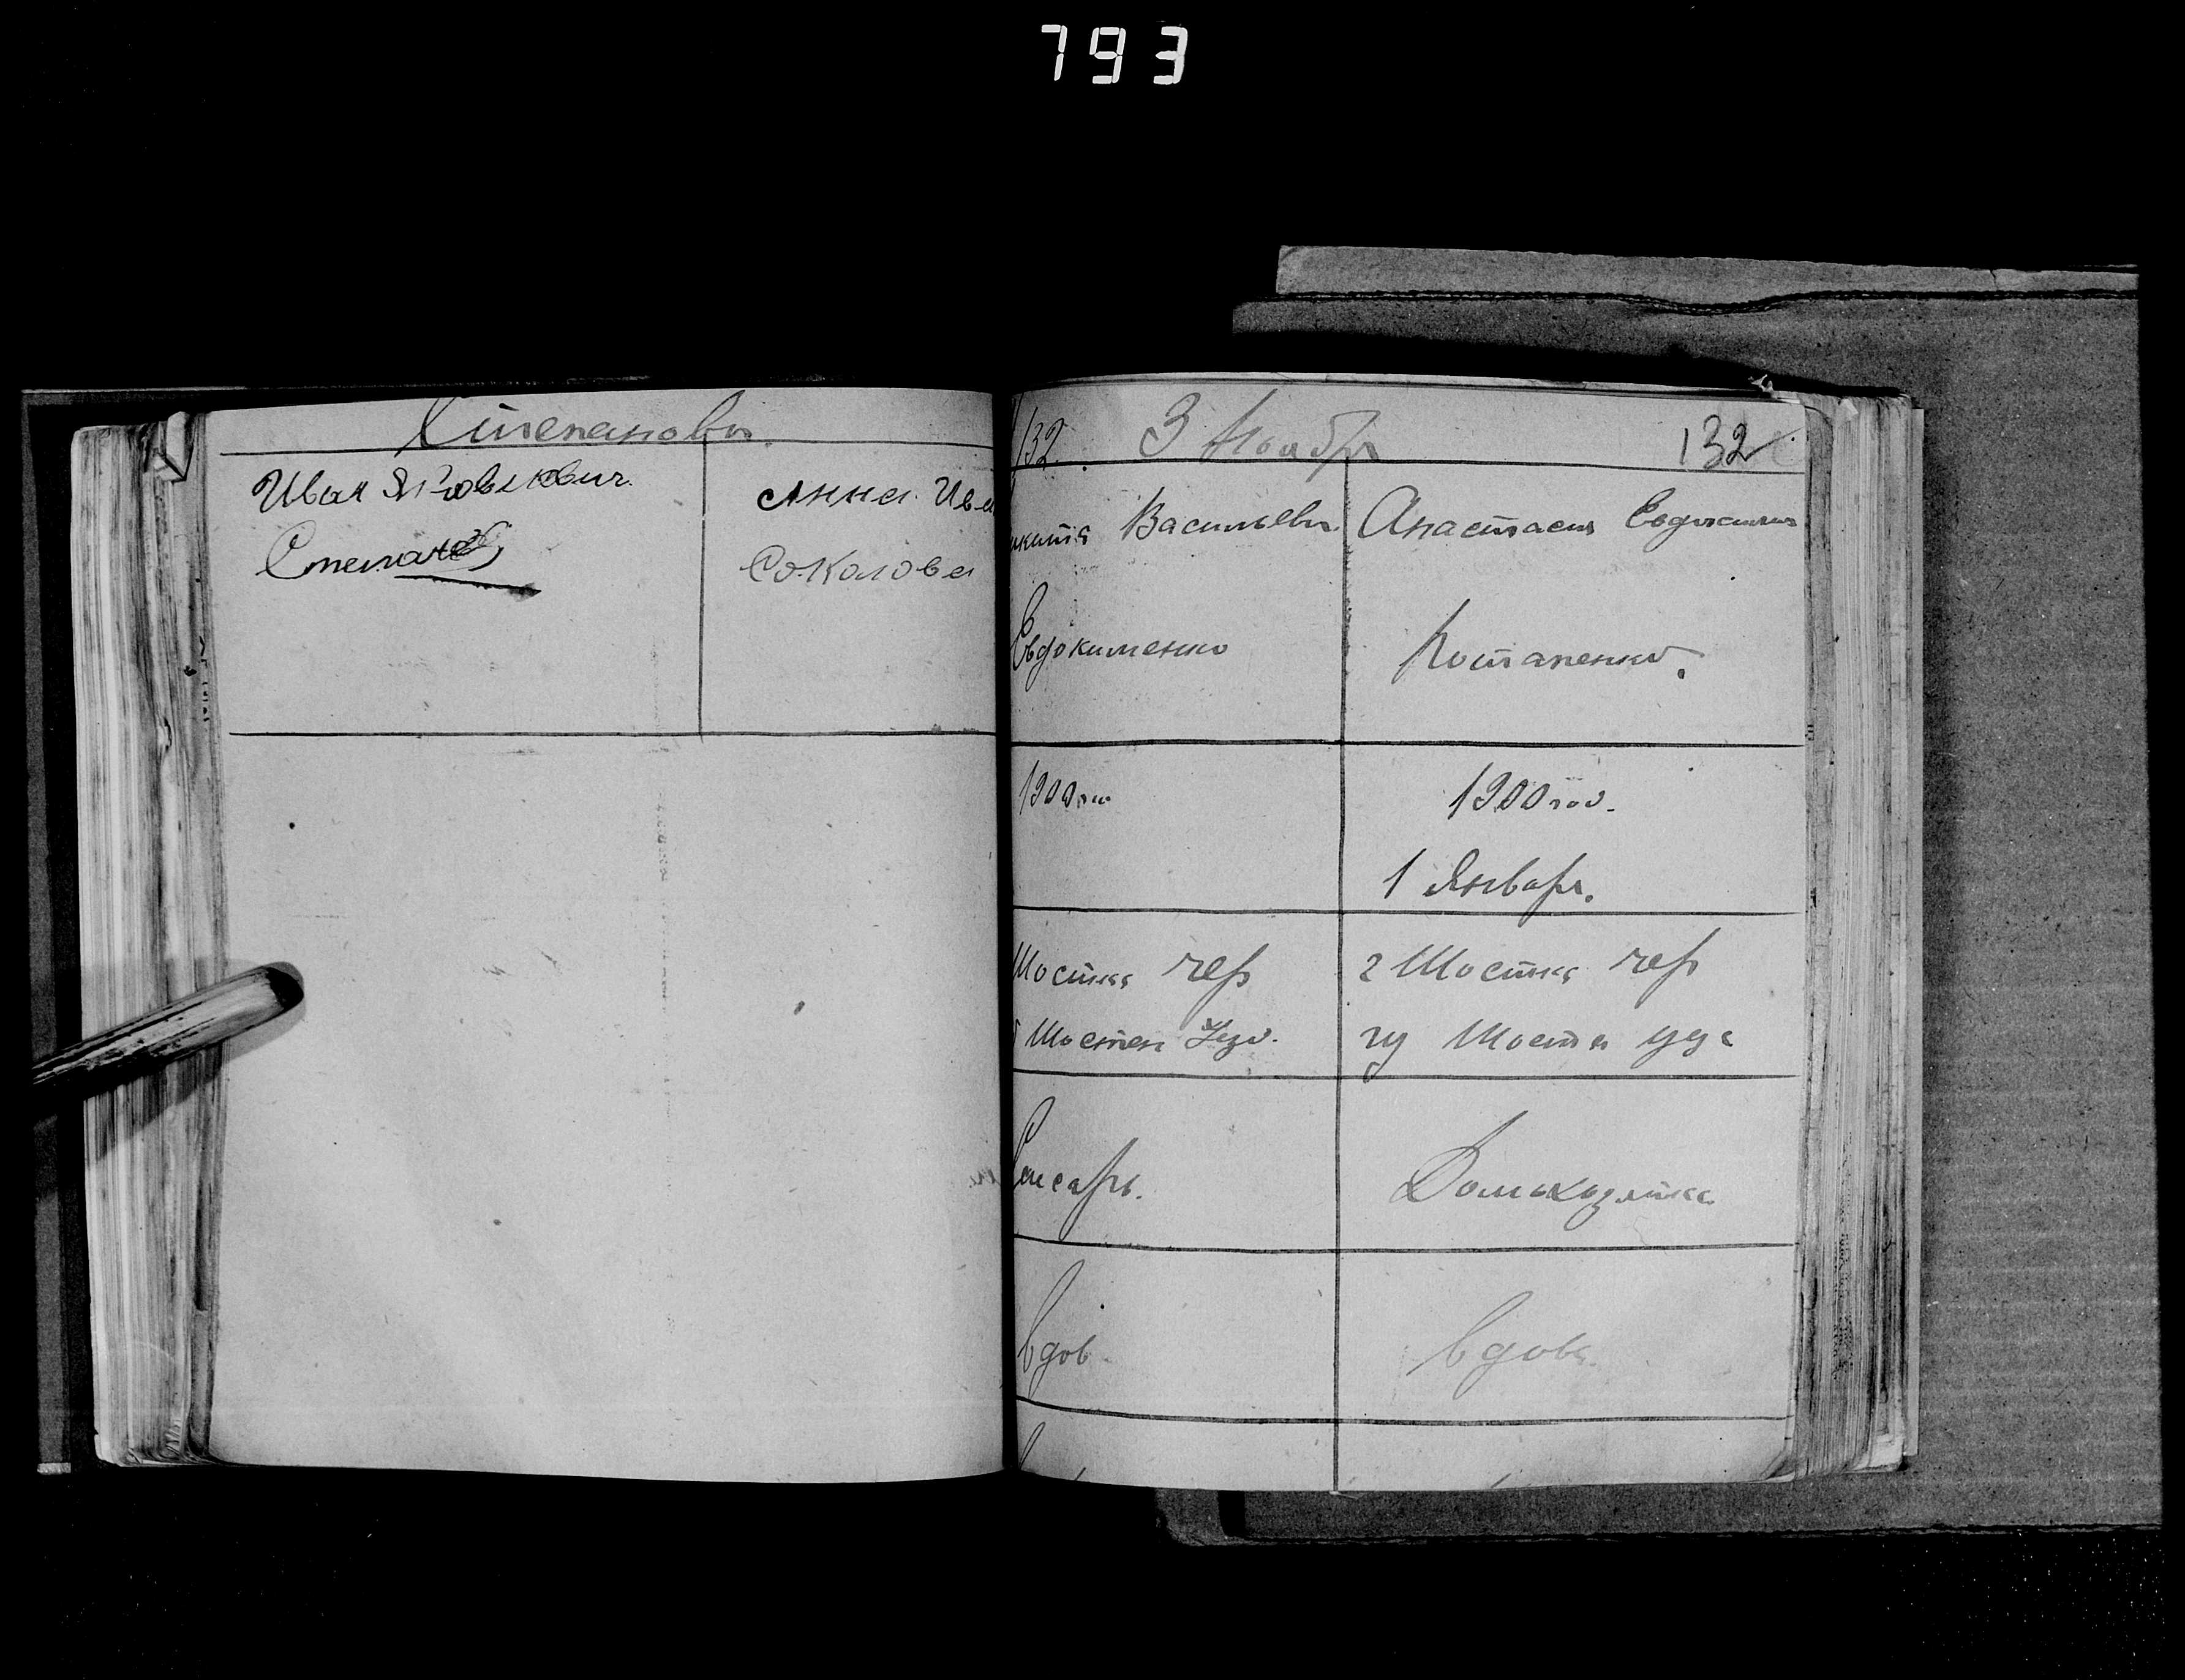 793
Степановы.
Иван Яковлевич
Степанов
Анна Ива
Соколова
132. 3 Ноября 132
икита Васильев. Анастасия
Евдокименко Потапенко.
1900 1900 год.
1 Января.
Шостка чер г Шостка чер
Шостен Уезд. гу Шостен уез
Слесарь. Домохозяйка
вдов вдова.